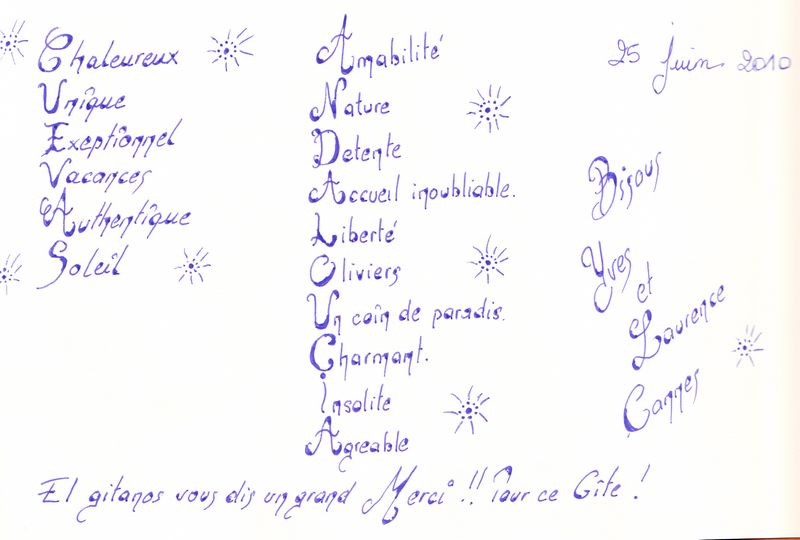 Chaleureux
Unique
Exeptionnel
Vacances
Authentique
Soleil
Amabilité
Nature
Detente
Accueil inoubliable.
Liberté
Oliviers
Un coin de paradis.
Charmant.
Insolite
Agreable
25 Juin 2010
Bisous
Yves
et
Laurence
Cannes
El gitanos vous dis un grand Merci !! Pour ce Gîte !